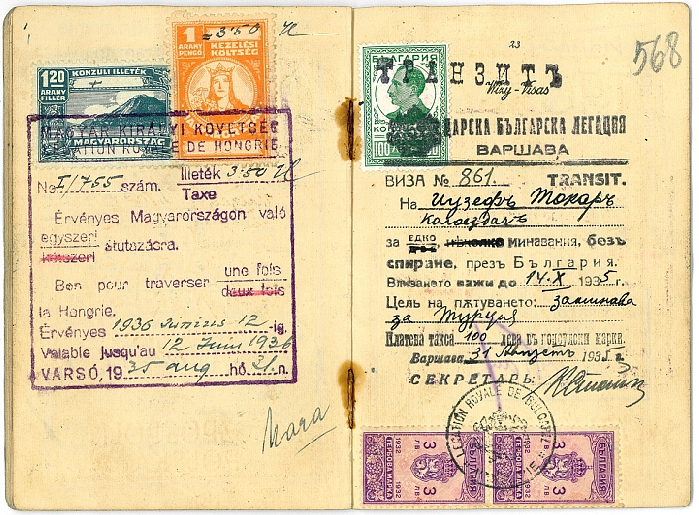 1 ARANY PENGŐ
KEZELÉSI KÖLTSÉG
= 3·50
KONZULI ILLETÉK
1.20
ARANY FILLÉR
MAGYARORSZÁG
MAGYAR KIRÁLYI KÖVETSÉG
LEGATION ROYALE DE HONGRIE
No I/755 szám. Illeték 3·50
Taxe
Érvényes Magyarországon való
egyszeri
kétszeri átutazásra.
Bon pour traverser une fois
deux fois
la Hongrie.
Érvényes 1936 Junius 12-ig.
Valable jusqu'au 12 Juin 1936
VARSÓ, 1935 aug hó 31.n.
23
568
БЪЛГАРИЯ
100
ТРАНЗИТЪ
Wizy-Visas
ЦАРСКА БЪЛГАРСКА ЛЕГАЦИЯ
ВАРШАВА
ВИЗА № 861. TRANSIT.
На Иузефъ Токаръ
за ЕДНО нѣколко минавания, безъ
спиране, презъ България.
Влизането важи до 14·X 1935 г.
Цель на пѫтуването: заминава
за Турция
Платена такса 100 лева въ гонсулски марки.
Варшава 31 Августъ 1935 г.
СЕКРЕТАРЬ:
LEGATION ROYALE DE BULGARIE
1932 3 ЛВ 1932 3 ЛВ БЪЛГАРИЯ
ГЕРБОВА МАРКА